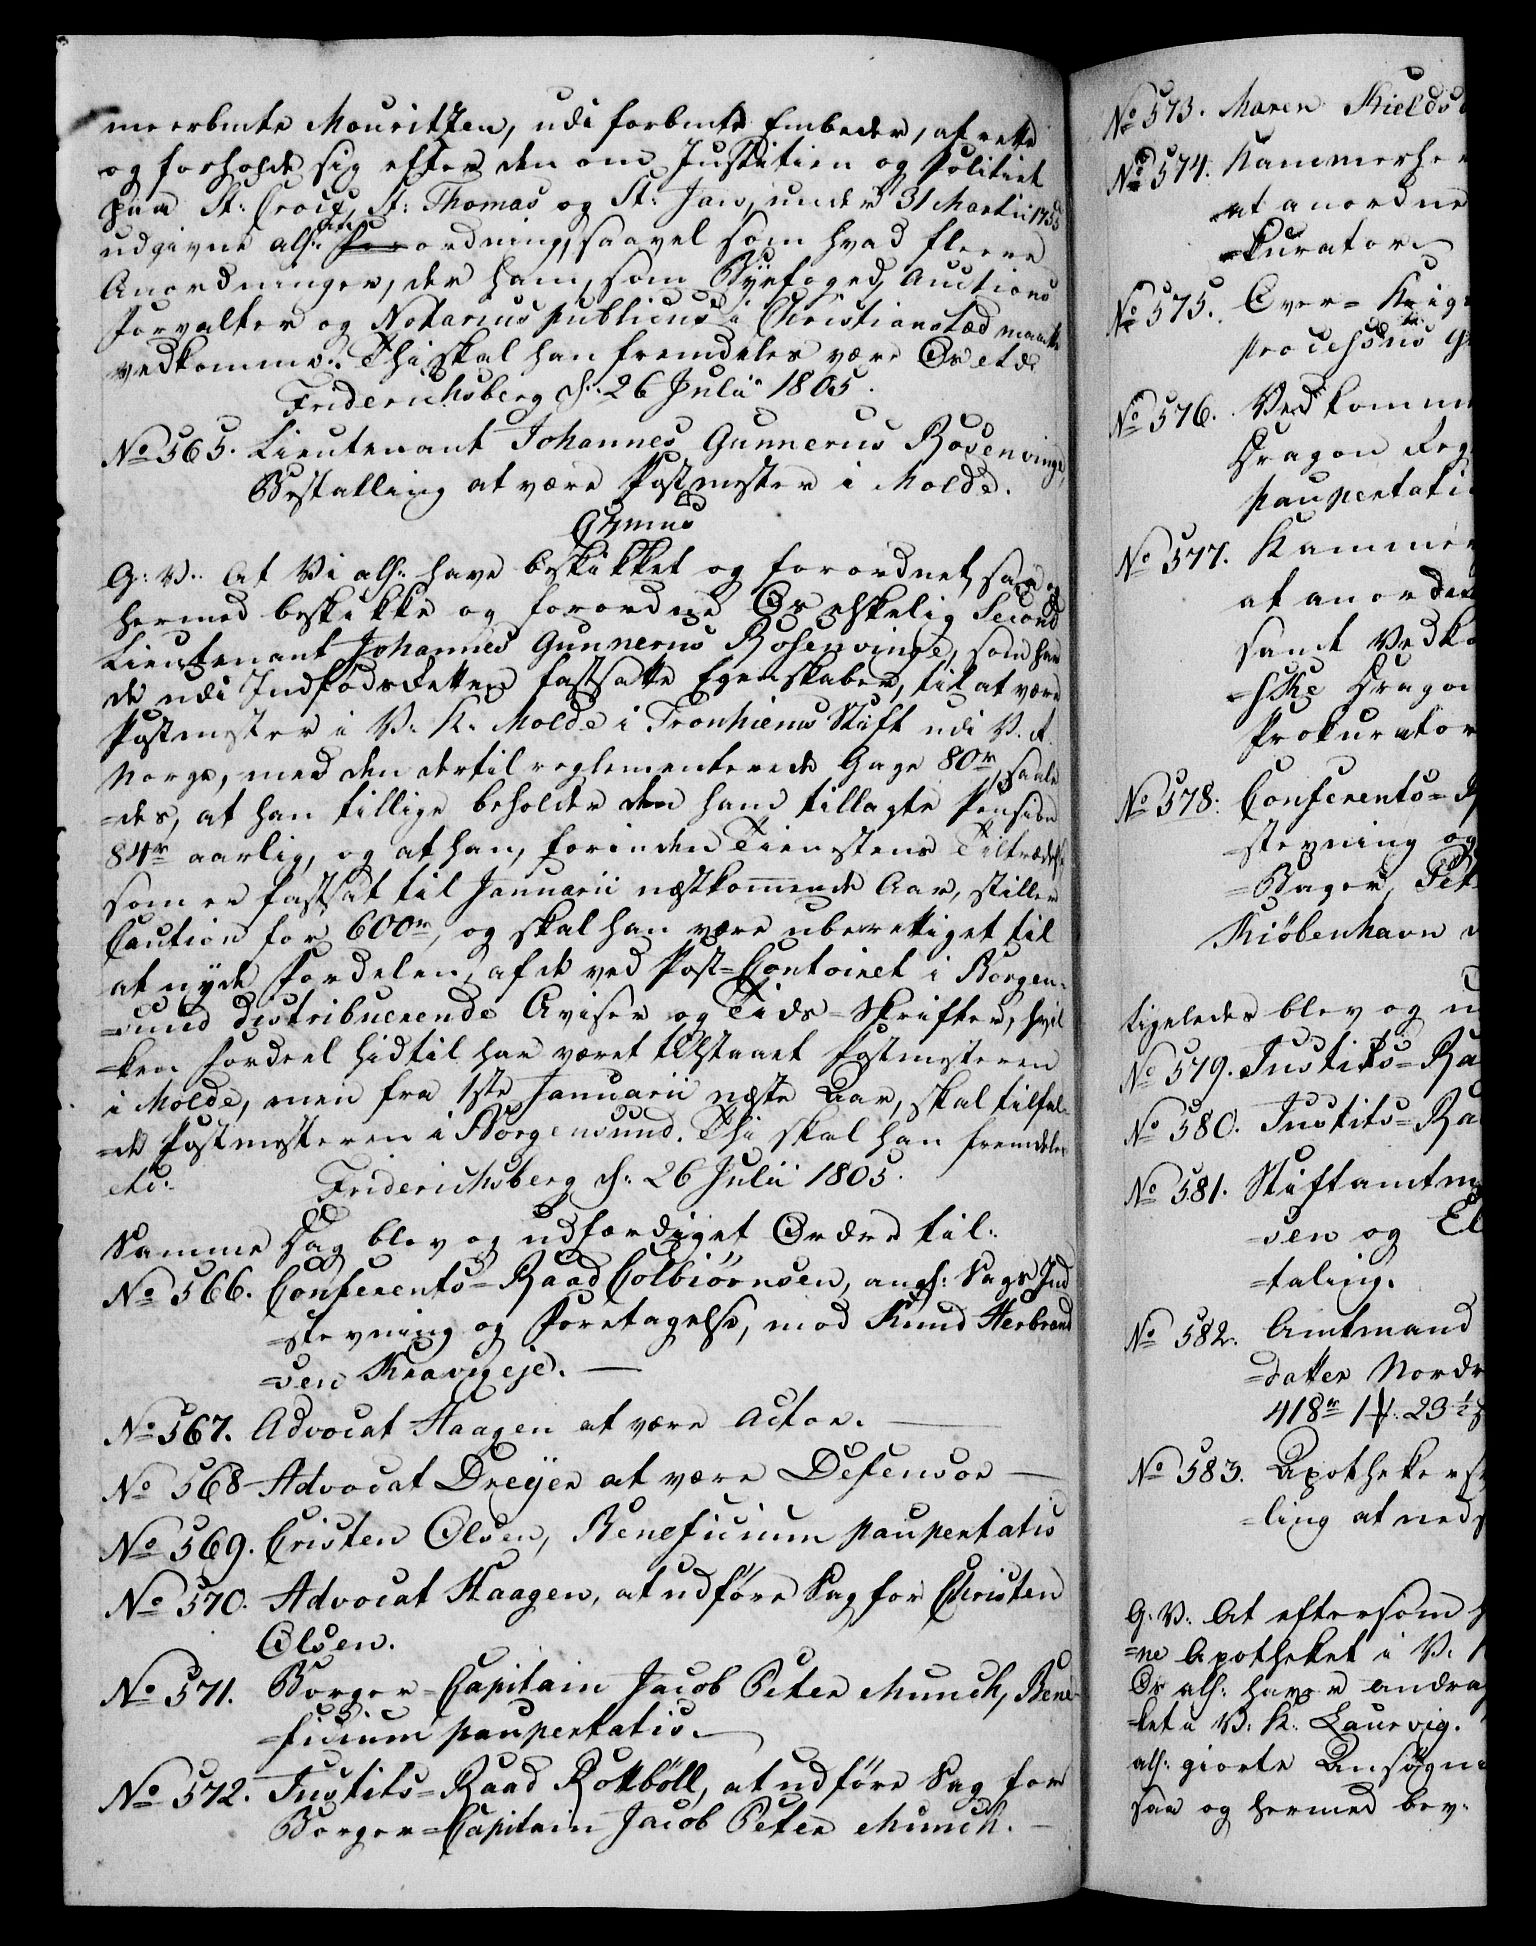 meerbmte Mouritzen, udi forbmte Embeder, at rette
og forholde sig efter den om Justitien og Politiet
paa St: Croix, St: Thomas og St: Jan, under 31 Martii 1755
udgivne alh: Anordning, saavel som hvad fleere
Anordninger, der ham, som Byefoged, Auctions
Forvalter og Notarius publicus i Christianstæd maatte
vedkomme. Thi skal han fremdeles være Os etc:
Friderichsberg d: 26 Julii 1805.
No 565. Lieutenant Johannes Gunnerus Rosenvinge,
Bestalling at være Postmester i Molde.
G: V: At Vi alh: have beskikket og forordnet, saa og
hermed beskikke og forordne Os elskelig Second
Lieutenant Johannes Gunnerus Rosenvinge, som har
de udi Indføds Retten fastsatte Egenskaber, til at være
Postmester i V. K. Molde i Tronhiems Stift udi V. R.
Norge, med den dertil reglementerede Gage 80r, saale
=des, at han tillige beholder den ham tillagte Pension
84r aarlig, og at han, forinden Tienstens Tiltrædelse
som er fastsat til Januarii næstkommende Aar, stiller
Caution for 600r, og skal han være uberettiget til
at nyde Fordelen, af de ved Post=Contoiret i Borgen=
=sund distribuerende Aviser og Tids=Skrifter, hvil
=ken Fordeel hidtil har været tilstaaet Postmesteren
i Molde, men fra 1ste Januarii næste Aar, skal tilfal=
=de Postmesteren i Borgensund. Thi skal han fremdeles
etc: Friderichsberg d: 26 Julii 1805.
Samme Dag blev og udfærdiget Ordre til:
No 566. Conferents=Raad Colbiørnsen, angh: Sags Ind
=stevning og Foretagelse, mod Knud Herbrand
=sen Kravigeje. —
No 567. Advocat Haagen at være Actor. —
No 568 Advocat Dreyer at være Defensor —
No 569. Cristen Olsen, Beneficium paupertatis
No 570. Advocat Haagen, at udføre Sag for Christen
Olsen.
No 571. Borger=Capitain Jacob Peter Munch, Bene=
=ficium paupertatis. —
No 572. Justits=Raad Rottbøll, at udføre Sag for
Borger=Capitain Jacob Peter Munch. —
No 573. Maren Kields
No 574. Kammerhe
at anordne
=kurator
No 575. Over=Krigs
processus
No 576. Vedkomm
Dragon Reg
paupertati
No 577. Kammer
at anordne
samt Vedko
=ske Dragon
Prokurator
No 578. Conferents=R
=stevning og
=Bager, Pet
Kiøbenhavn
Ligeledes blev og u
No 579. Justits=Ra
No 580. Justits=Ra
No 581. Stiftamtm
=sen og El
=taling.
No 582. Amtmand
=datter Nordr
418r 1 ꝟ. 23½
No 583. Apothekers
=ling at neds
G: V: At eftersom
=ne Apotheket i V.
Os alh: haver andrag
=ket i V: K: Laurvig.
alh: giorte Ansøgni
saa og hermed bev: